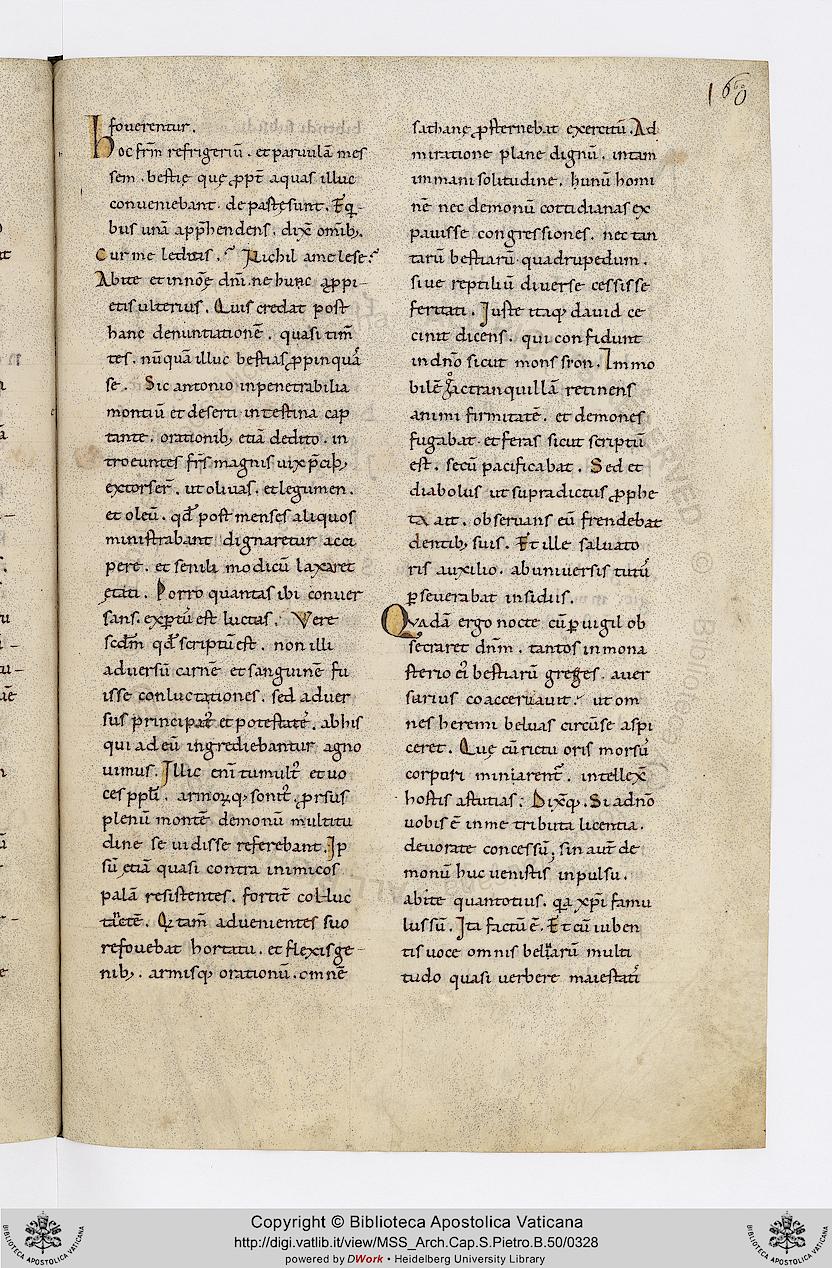 160
fouerentur.
hoc frm̄ refrigeriū. et paruulā mes
sem. bestię quę ꝓpt̄ aquas illuc
conueniebant. depastę sunt. E q̄
bus unā app̄hendens. dix̄ omib;.
Cur me leditis. Nichil a me lese?
Abite et in noīe dn̄i. ne hunc ꝓpi
etis ulterius. Quis credat post
hanc denuntiationē. quasi tim̄
tes. nūquā illuc bestias ꝓpinquā
se. Sic antonio inpenetrabilia
montiū et deserti intestina cap
tante. orationib; etiā dedito. in
troeuntes frs̄ magnis uix p̄cib;
extorser̄. ut oliuas. et legumen.
et oleū. qd̄ post menses aliquos
ministrabant dignaretur acci
pere. et senili modicū laxaret
ętati. Porro quantas ibi conuer
sans. exꝑtus est luctas. Vere
scdm̄ qd̄ scriptū est. non illi
aduersū carnē et sanguinē fu
isse conluctationes. sed aduer
sus principat᷒ et potestate᷒. ab his
qui ad eū ingrediebantur agno
uimus. Illic eni᷒ tumult᷒ et uo
ces ppl̄i. armoꝝq; sonit᷒. ꝓrsus
plenū montē demonū multitu
dine se uidisse referebant. Ip
sū etiā quasi contra inimicos
palā resistentes. fortit᷒ colluc
tātē. Q tam̄ aduenientes suo
refouebat hortatu. et flexis ge
nib;. armisq; orationū. omnē
sathanę ꝓsternebat exercitū. Ad
miratione plane dignū. in tam
immani solitudine. hunū homi
nē nec demonū cottidianas ex
pauisse congressiones. nec tan
tarū bestiarū quadrupedum.
siue reptiliū diuerse cessisse
feritati. Iuste itaq; dauid ce
cinit dicens. qui confidunt
in dn̄o sicut mons sion. Immo
bilē ac tranquillā retinens
animi firmitatē. et demones
fugabat. et feras sicut scriptū
est. secū pacificabat. Sed et
diabolus ut supradictus ꝓphe
ta ait. obseruans eū frendebat
dentib; suis. Et ille saluato
ris auxilio. ab uniuersis tutu᷒
ꝑseuerabat insidiis.
Quadā ergo nocte cū ꝑuigil ob
secraret dn̄m. tantos in mona
sterio ei᷒ bestiarū greges. auer
sarius coaceruauit. ut om
nes heremi beluas circū se aspi
ceret. Quę cū rictu oris morsu᷒
corpori miniarent᷒. intellex̄
hostis astutias. Dixq;. Si a dn̄o
uobis ē in me tributa licentia.
deuorate concessū. sin aut̄ de
monū huc uenistis inpulsu.
abite quantotius. qa xp̄i famu
lus sū. Ita factū ē. Et cū iuben
tis uoce omnis beluarū multi
tudo quasi uerbere maiestati᷒
Copyright © Biblioteca Apostolica Vaticana
http://digi.vatlib.it/view/MSS_Arch.Cap.S.Pietro.B.50/0328
powered by DWork • Heidelberg University Library
BIBLIOTECA APOSTOLICA VATICANA
BIBLIOTECA APOSTOLICA VATICANA